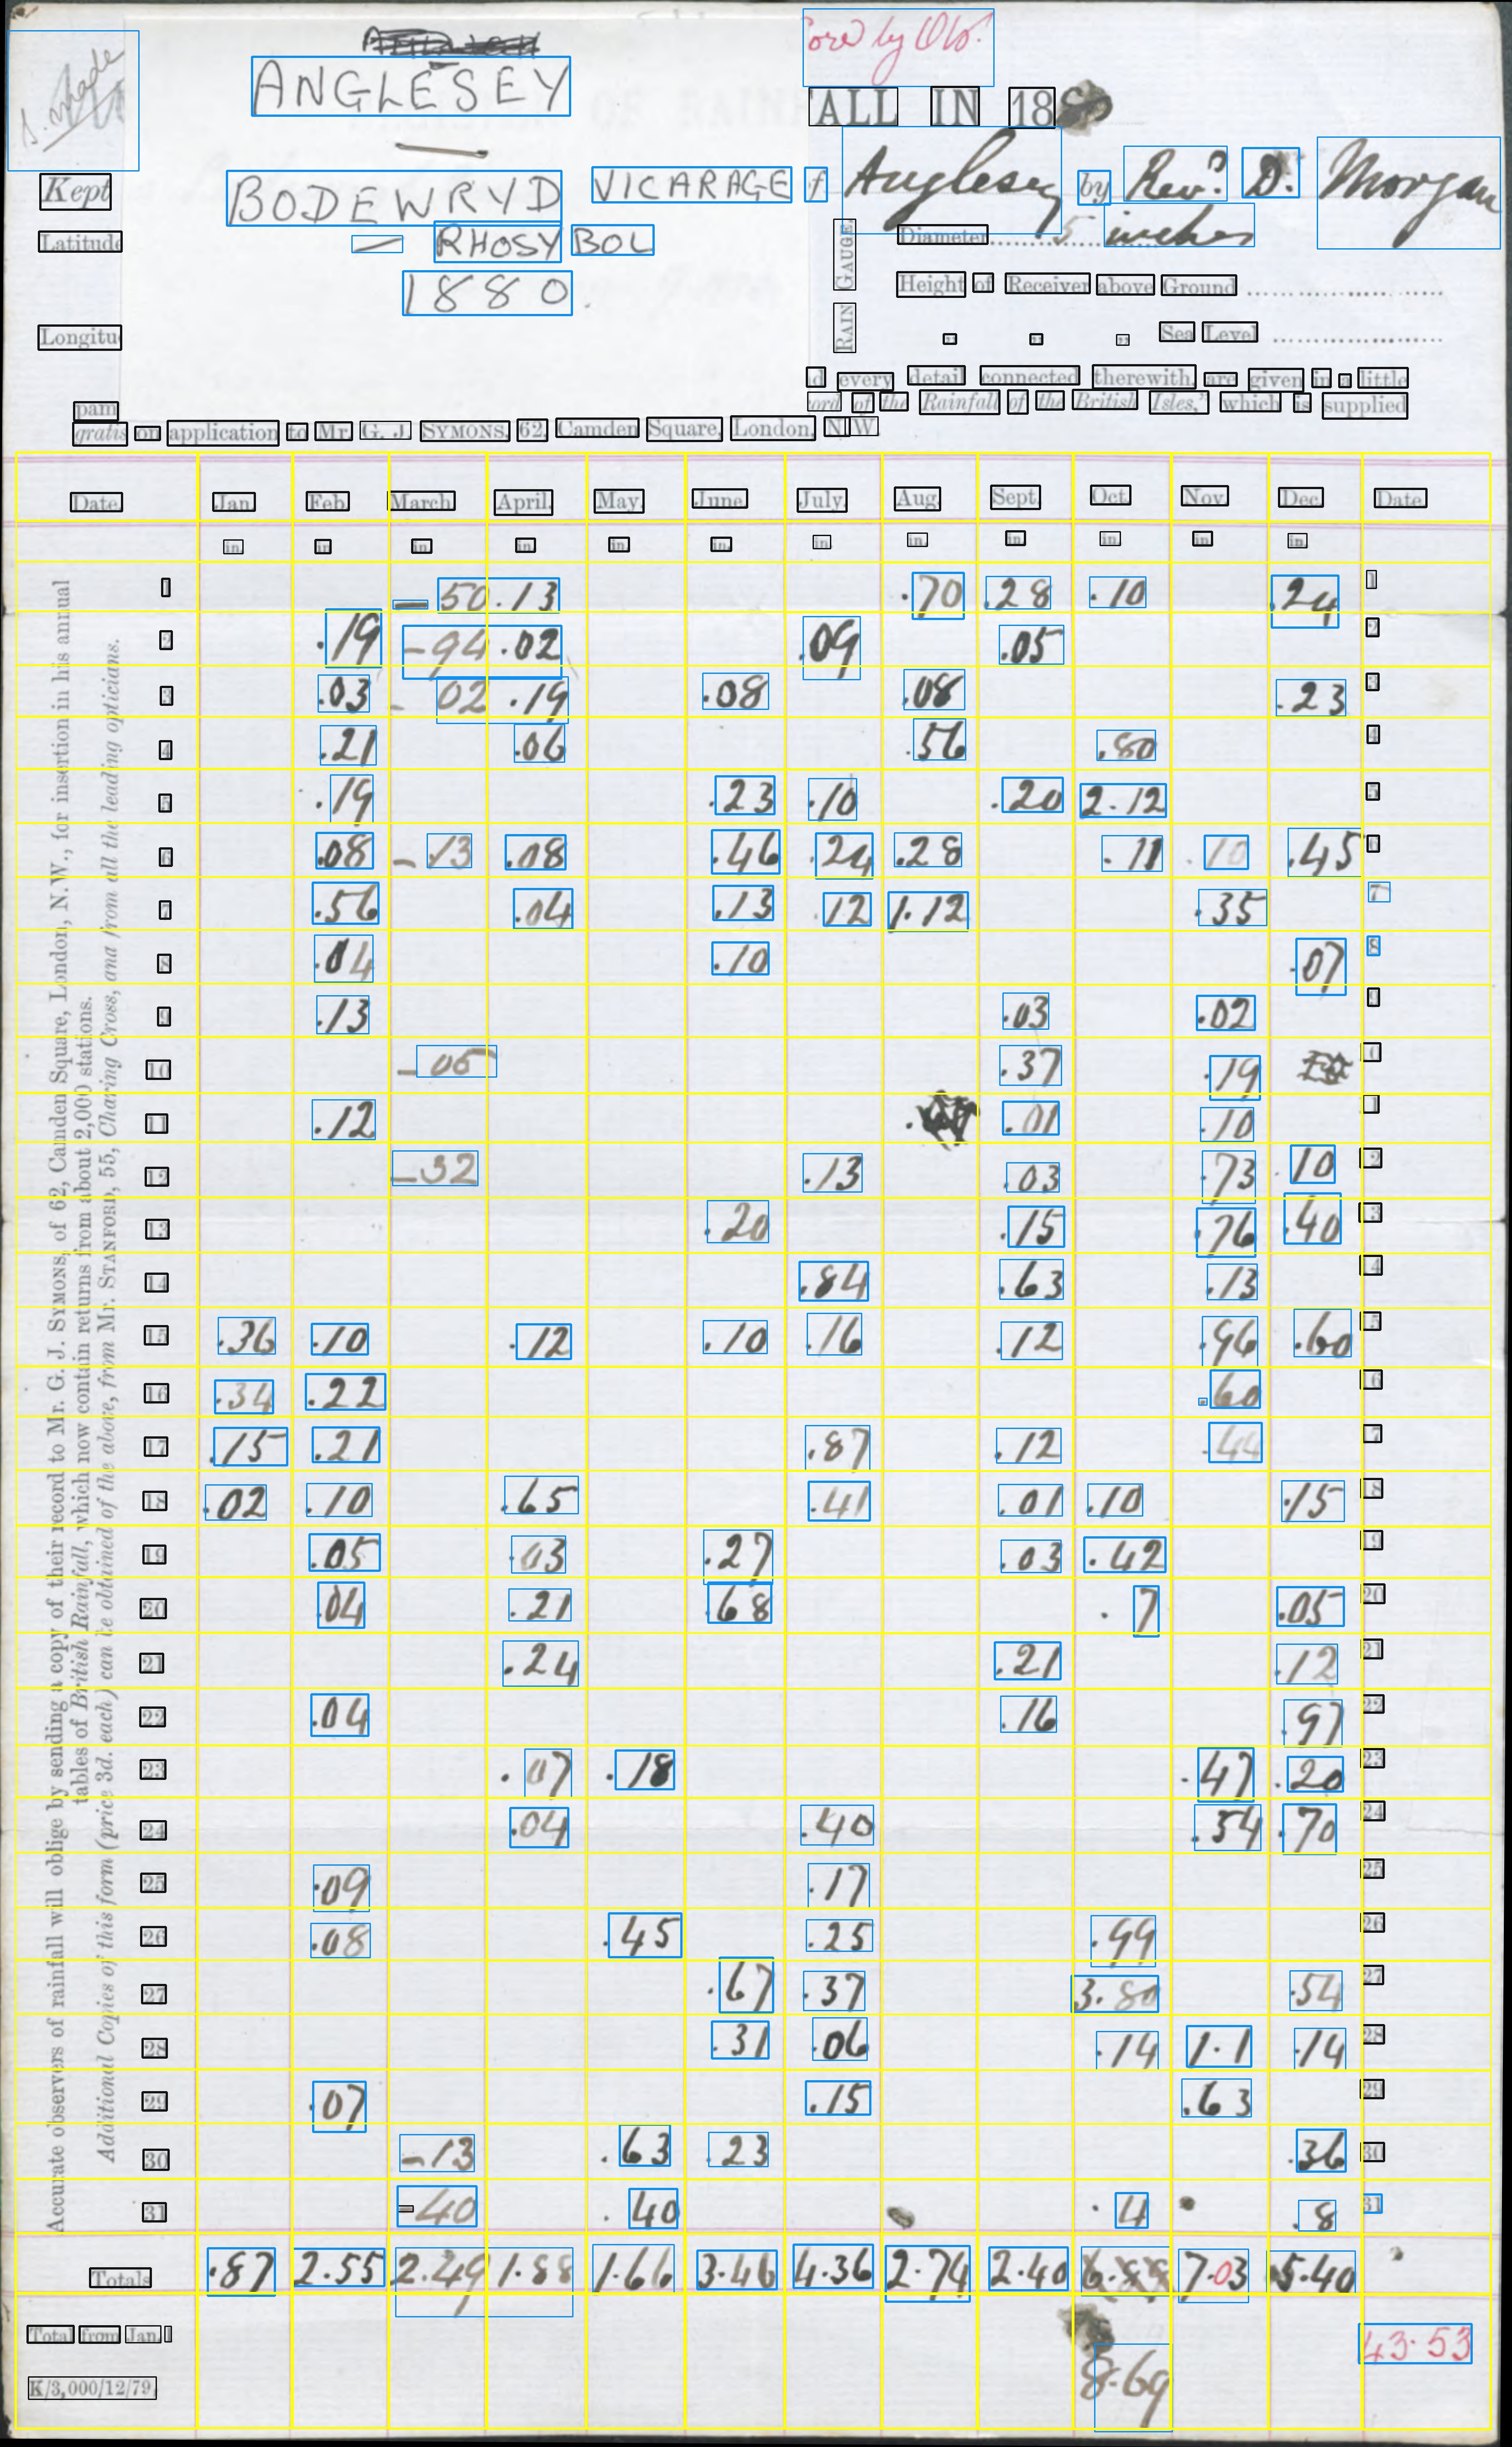 S. Made
ANGLESEY
ored by Ols.
ALL IN 18
Kept BODEWRYD VICARAGE f Anglesey by Revd. D. Morgan
Latitude — RHOSY BOL
RAIN GAUGE.
Diameter 5 inches
1880.
Height of Receiver above Ground
Longitu
" " " Sea Level
d every detail connected therewith, are given in a little
pam ord of the Rainfall of the British Isles," which is supplied
gratis on application to Mr. G. J. SYMONS, 62, Camden Square, London, N.W.
Date. Jan. Feb. March. April. May. June. July. Aug. Sept. Oct. Nov. Dec. Date.
in. in. in. in. in. in. in. in. in. in. in. in.
Accurate observers of rainfall will oblige by sending a copy of their record to Mr. G. J. SYMONS, of 62, Camden Square, London, N.W., for insertion in his annual
tables of British Rainfall, which now contain returns from about 2,000 stations.
Additional Copies of this form (price 3d. each) can be obtained of the above, from Mr. STANFORD, 55, Charing Cross, and from all the leading opticians.
1 – 50 .13 .70 .28 .10 .24 1
2 .19 – 94 .02 .09 .05 2
3 .03 – 02 .19 .08 .08 .23 3
4 .21 .06 .56 .80 4
5 .19 .23 .10 .20 2.12 5
6 .08 – .13 .08 .46 .24 .28 .11 .10 .45 6
7 .56 .04 .13 .12 1.12 .35 7
8 .04 .10 .07 8
9 .13 .03 .02 9
10 – 05 .37 .19 0
11 .12 .01 .10 1
12 – 32 .13 .03 .73 .10 2
13 .20 .15 .76 .40 3
14 .84 .63 .13 4
15 .36 .10 .12 .10 .16 .12 .96 .60 5
16 .34 .22 .60 6
17 .15 .21 .87 .12 .44 7
18 .02 .10 .65 .41 .01 .10 .15 18
19 .05 .03 .27 .03 .42 19
20 .04 .21 .68 .7 .05 20
21 .24 .21 .12 21
22 .04 .16 .97 22
23 .07 .18 .47 .20 23
24 .04 .40 .54 .70 24
25 .09 .17 25
26 .08 .45 .25 .99 26
27 .67 .37 3.80 .54 27
28 .31 .06 .14 1.1 .14 28
29 .07 .15 .63 29
30 – 13 .63 .23 .36 30
31 – 40 .40 .4 .8 31
Totals .87 2.55 2.49 1.88 1.66 3.46 4.36 2.74 2.40 7.03 5.40
Total from Jan. 1
43.53
8.69
K/3,000/12/79.